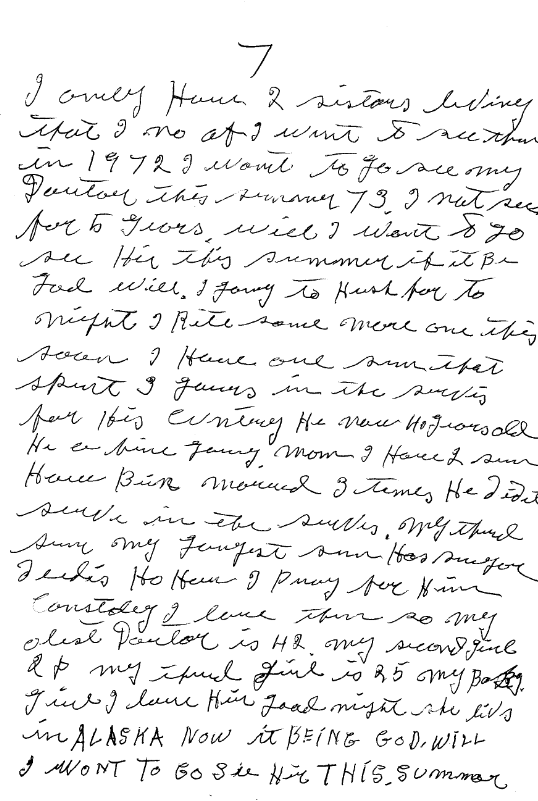 7
I only Have 2 sistors living
that I no of I wint to see them
in 1972 I wont to go see my
Doutor this summer 73, I not see
for 5 Years, will I Want to go
see Hir this summer if it Be
God will. I going to Hush for to
night I Rite some more one this
soon I Have one sun that
spint 3 years in the servis
for His Cuntery He now 40 years old
He a fine young mom I Have 2 sun
Have Bin married 3 times He did
serve in the servis. My third
sun my youngest sun Has sugor
I Pray for Him
I love them so my
olest Doutor is 42. my second girl
28 my third girl is 25 my Baby
girl I love Hir good night she livs
in ALASKA NOW it BEING GOD. WILL
I WONT TO GO SEE HIR THIS. SUMMER